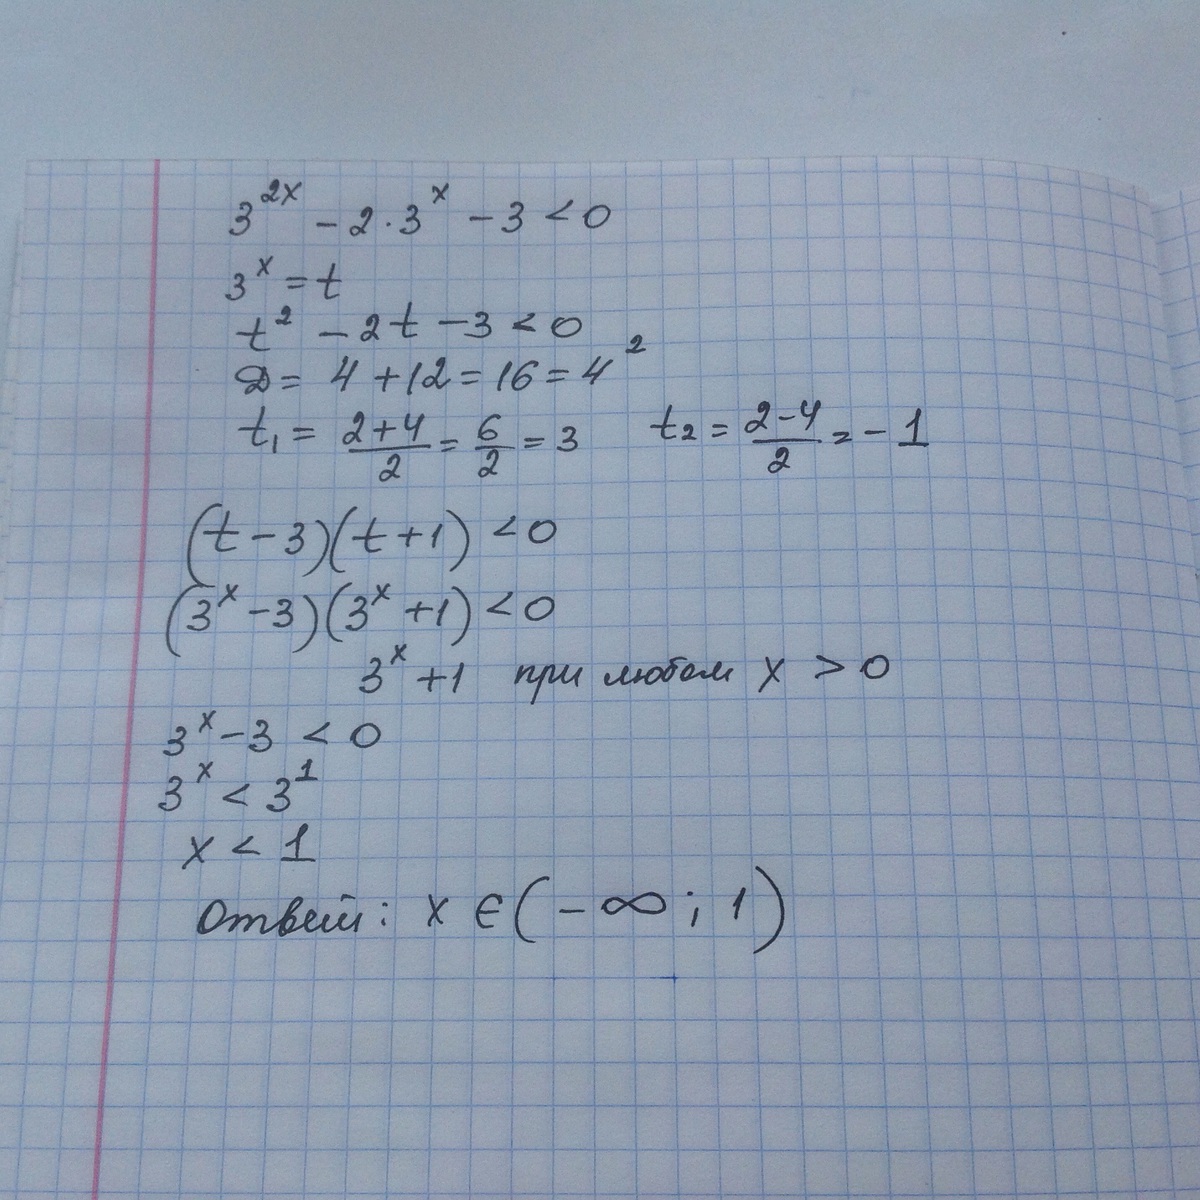 3^2x − 2·3^x − 3 < 0
3^x = t
t² − 2t − 3 < 0
D = 4 + 12 = 16 = 4²
t₁ = (2+4)/2 = 6/2 = 3    t₂ = (2−4)/2 = −1
(t − 3)(t + 1) < 0
(3^x − 3)(3^x + 1) < 0
3^x + 1 при любом x > 0
3^x − 3 < 0
3^x < 3^1
x < 1
Ответ: x ∈ (−∞; 1)